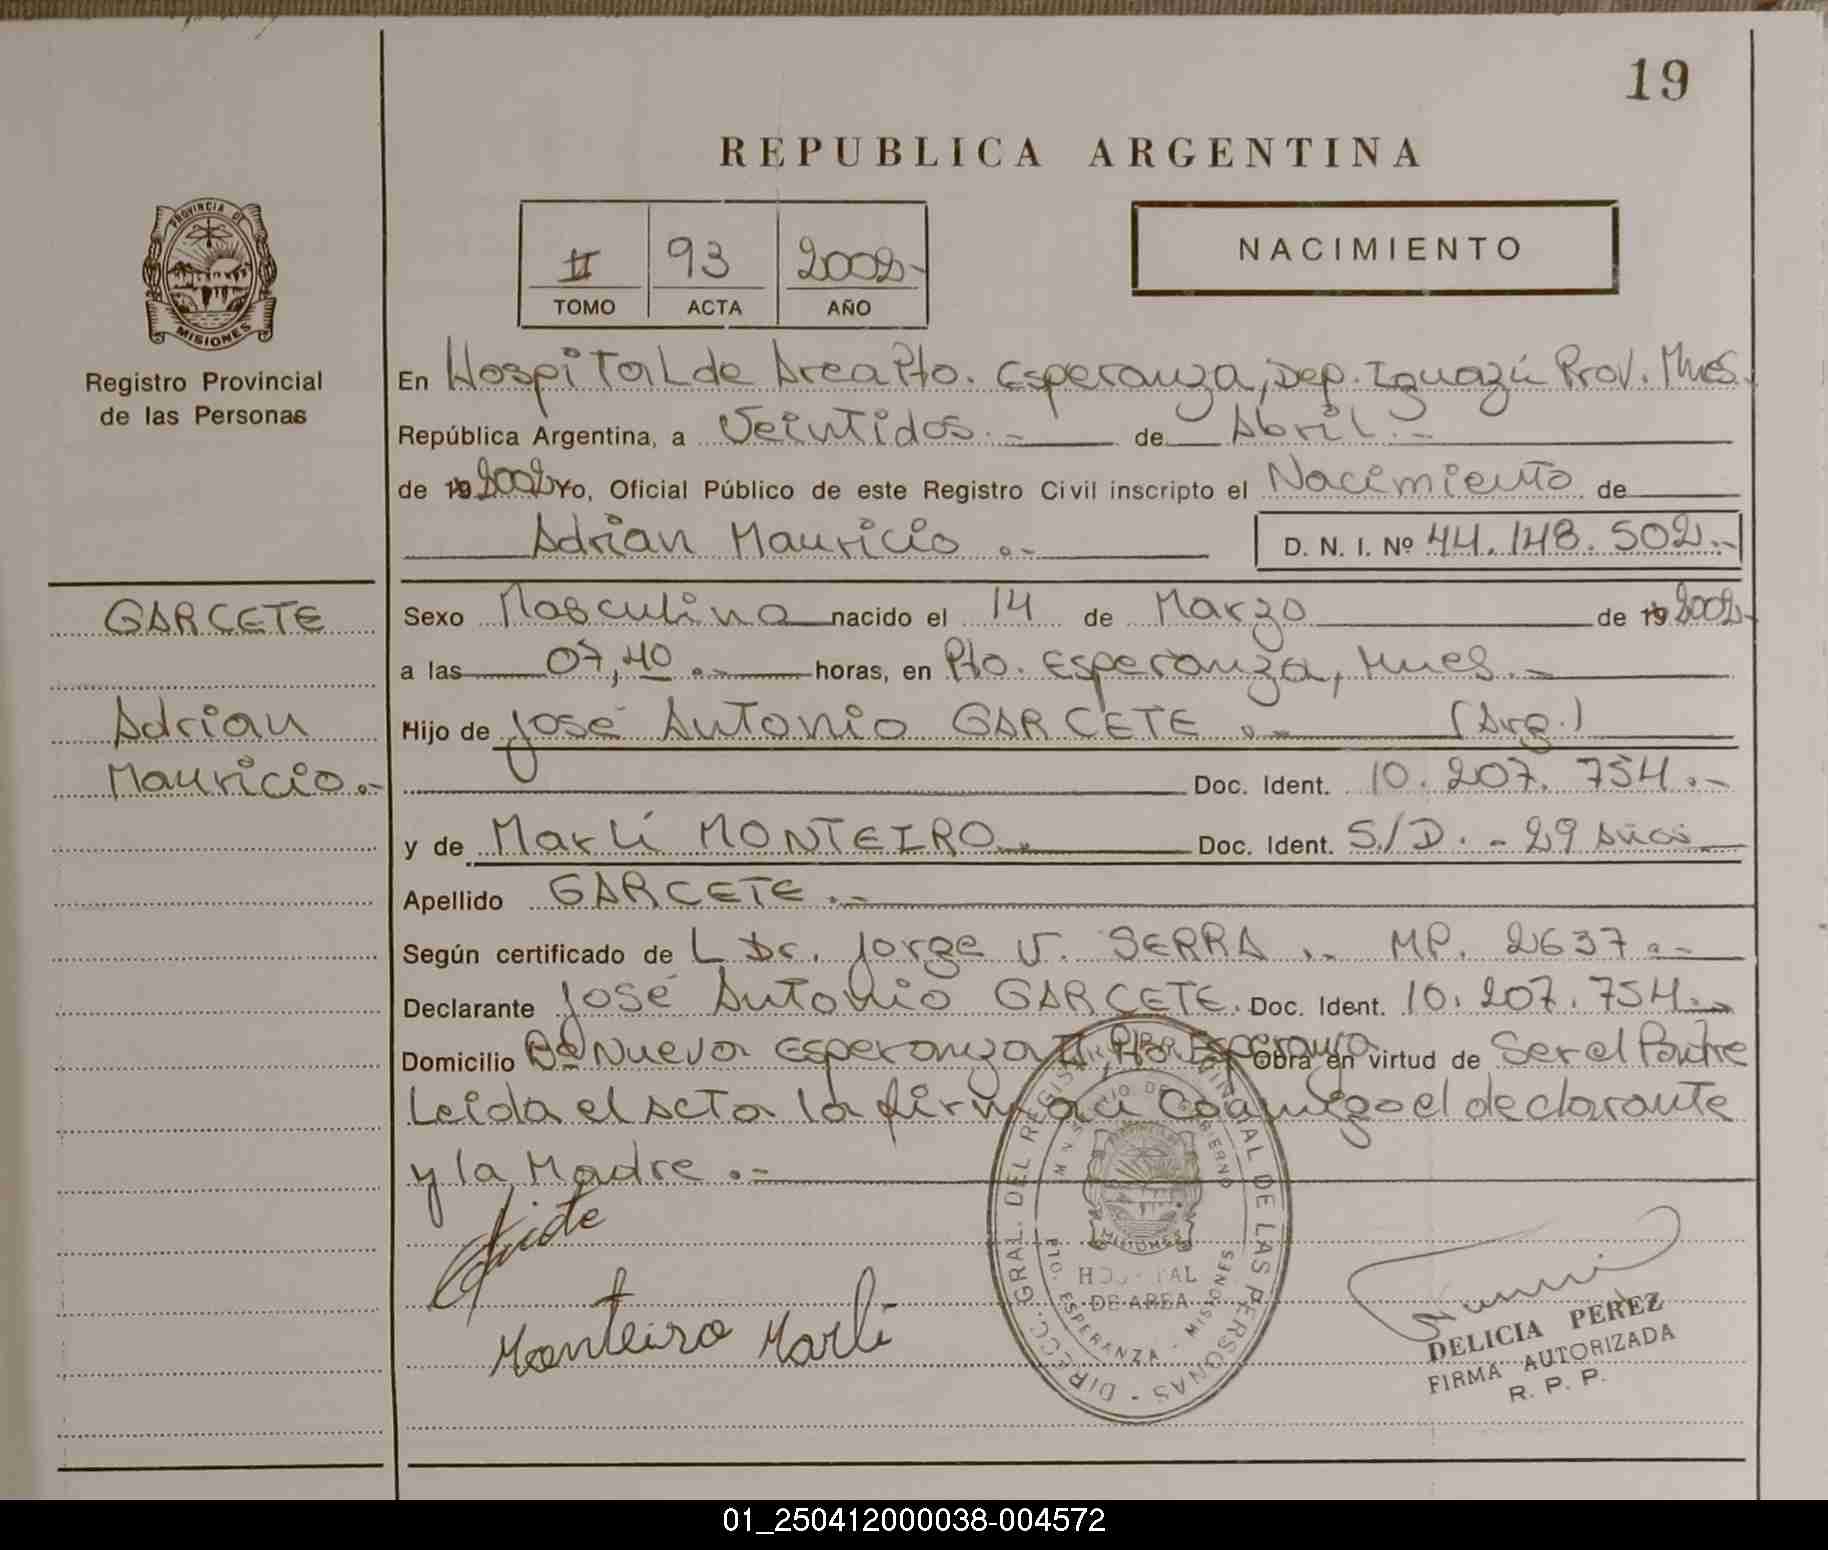 19
REPUBLICA ARGENTINA
PROVINCIA DE
MISIONES
Registro Provincial
de las Personas
II 93 2002-
TOMO ACTA AÑO
NACIMIENTO
En Hospital de Area Pto. Esperanza, Dep. Iguazú Prov. Mnes.
República Argentina, a Veintidos.- de Abril.-
de 19 2002 Yo, Oficial Público de este Registro Civil inscripto el Nacimiento de
Adrian Mauricio.- D. N. I. Nº 44.148.502.-
GARCETE
Adrian
Mauricio.-
Sexo Masculino nacido el 14 de Marzo de 19 2002-
a las 07,40.- horas, en Pto. Esperanza, Mnes.-
Hijo de José Antonio GARCETE.- (Arg.)
Doc. Ident. 10.207.754.-
y de Marlí MONTEIRO.- Doc. Ident. S/D.- 29 años
Apellido GARCETE.-
Según certificado de L Dr. Jorge V. SERRA.. MP. 2637.-
Declarante José Antonio GARCETE. Doc. Ident. 10.207.754.-
Domicilio Bº Nueva Esperanza II, Pto. Esperanza Obra en virtud de Ser el Padre
Leida el acta la firman conmigo el declarante
y la Madre.-
Monteiro Marli
DIRECC. GRAL. DEL REGISTRO PROVINCIAL DE LAS PERSONAS
MINISTERIO DE GOBIERNO
MISIONES
HOSPITAL
DE AREA
PTO. ESPERANZA - MISIONES
DELICIA PEREZ
FIRMA AUTORIZADA
R. P. P.
01_250412000038-004572